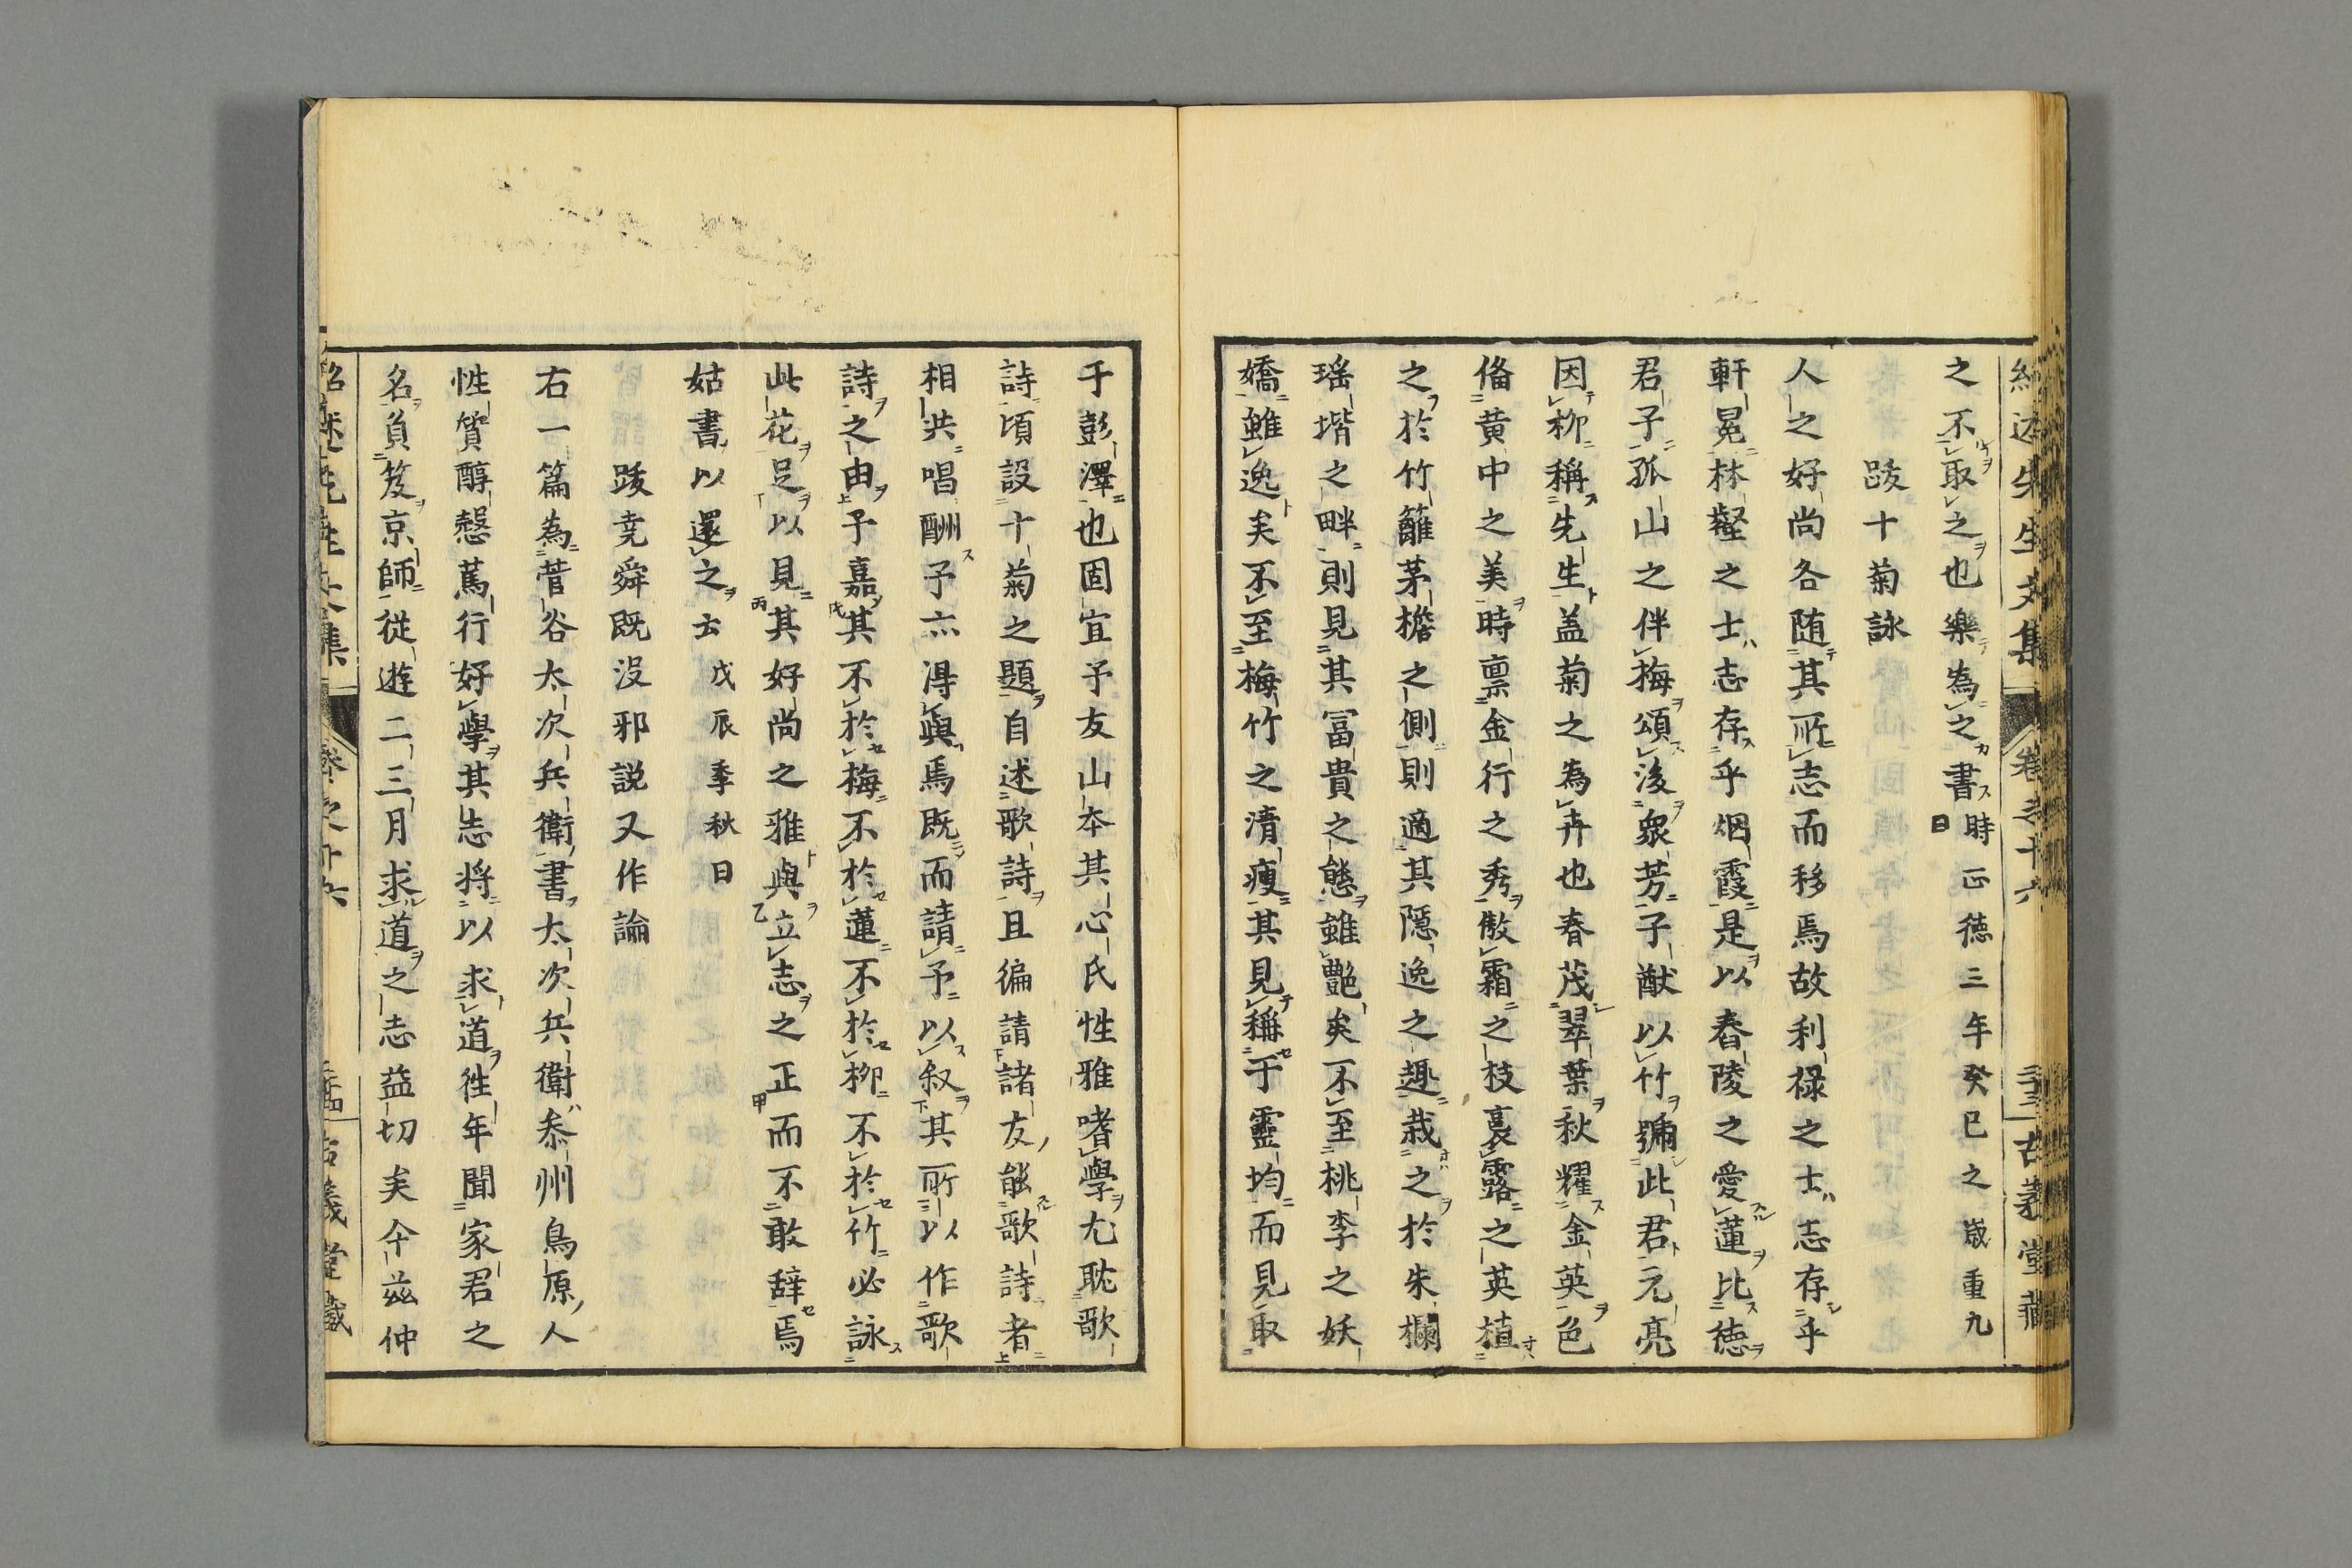 之不取之也樂為之書時正德三年癸巳之歳重九日
跋十菊詠
人之好尚各随其所志而移焉故利禄之士志存乎
軒冕林壑之士志存乎烟霞是以舂陵之愛蓮比德
君子孤山之伴梅頌後衆芳子猷以竹號此君元亮
因柳稱先生盖菊之為卉也春茂翠葉秋耀金英色
俻黄中之美時禀金行之秀傲霜之枝裛露之英植
之於竹籬茅檐之側則適其隠逸之趣栽之於朱欄
瑶堦之畔則見其冨貴之態雖艶矣不至桃李之妖
嬌雖逸矣不至梅竹之清瘦其見稱于靈均而見取
于彭澤也固宜予友山本其心氏性雅嗜學尤耽歌
詩頃設十菊之題自述歌詩且徧請諸友能歌詩者
相共唱酬予亦得與焉既而請予以叙其所以作歌
詩之由予嘉其不於梅不於蓮不於柳不於竹必詠
此花足以見其好尚之雅與立志之正而不敢辞焉
姑書以還之云戊辰季秋日
跋尭舜既没邪説又作論
右一篇為菅谷太次兵衛書太次兵衛叅州鳥原人
性質醇慤蔦行好學其志将以求道徃年聞家君之
名負笈京師從遊二三月求道之志益切矣今茲仲
紹述先生文集
卷之十六
古義堂藏